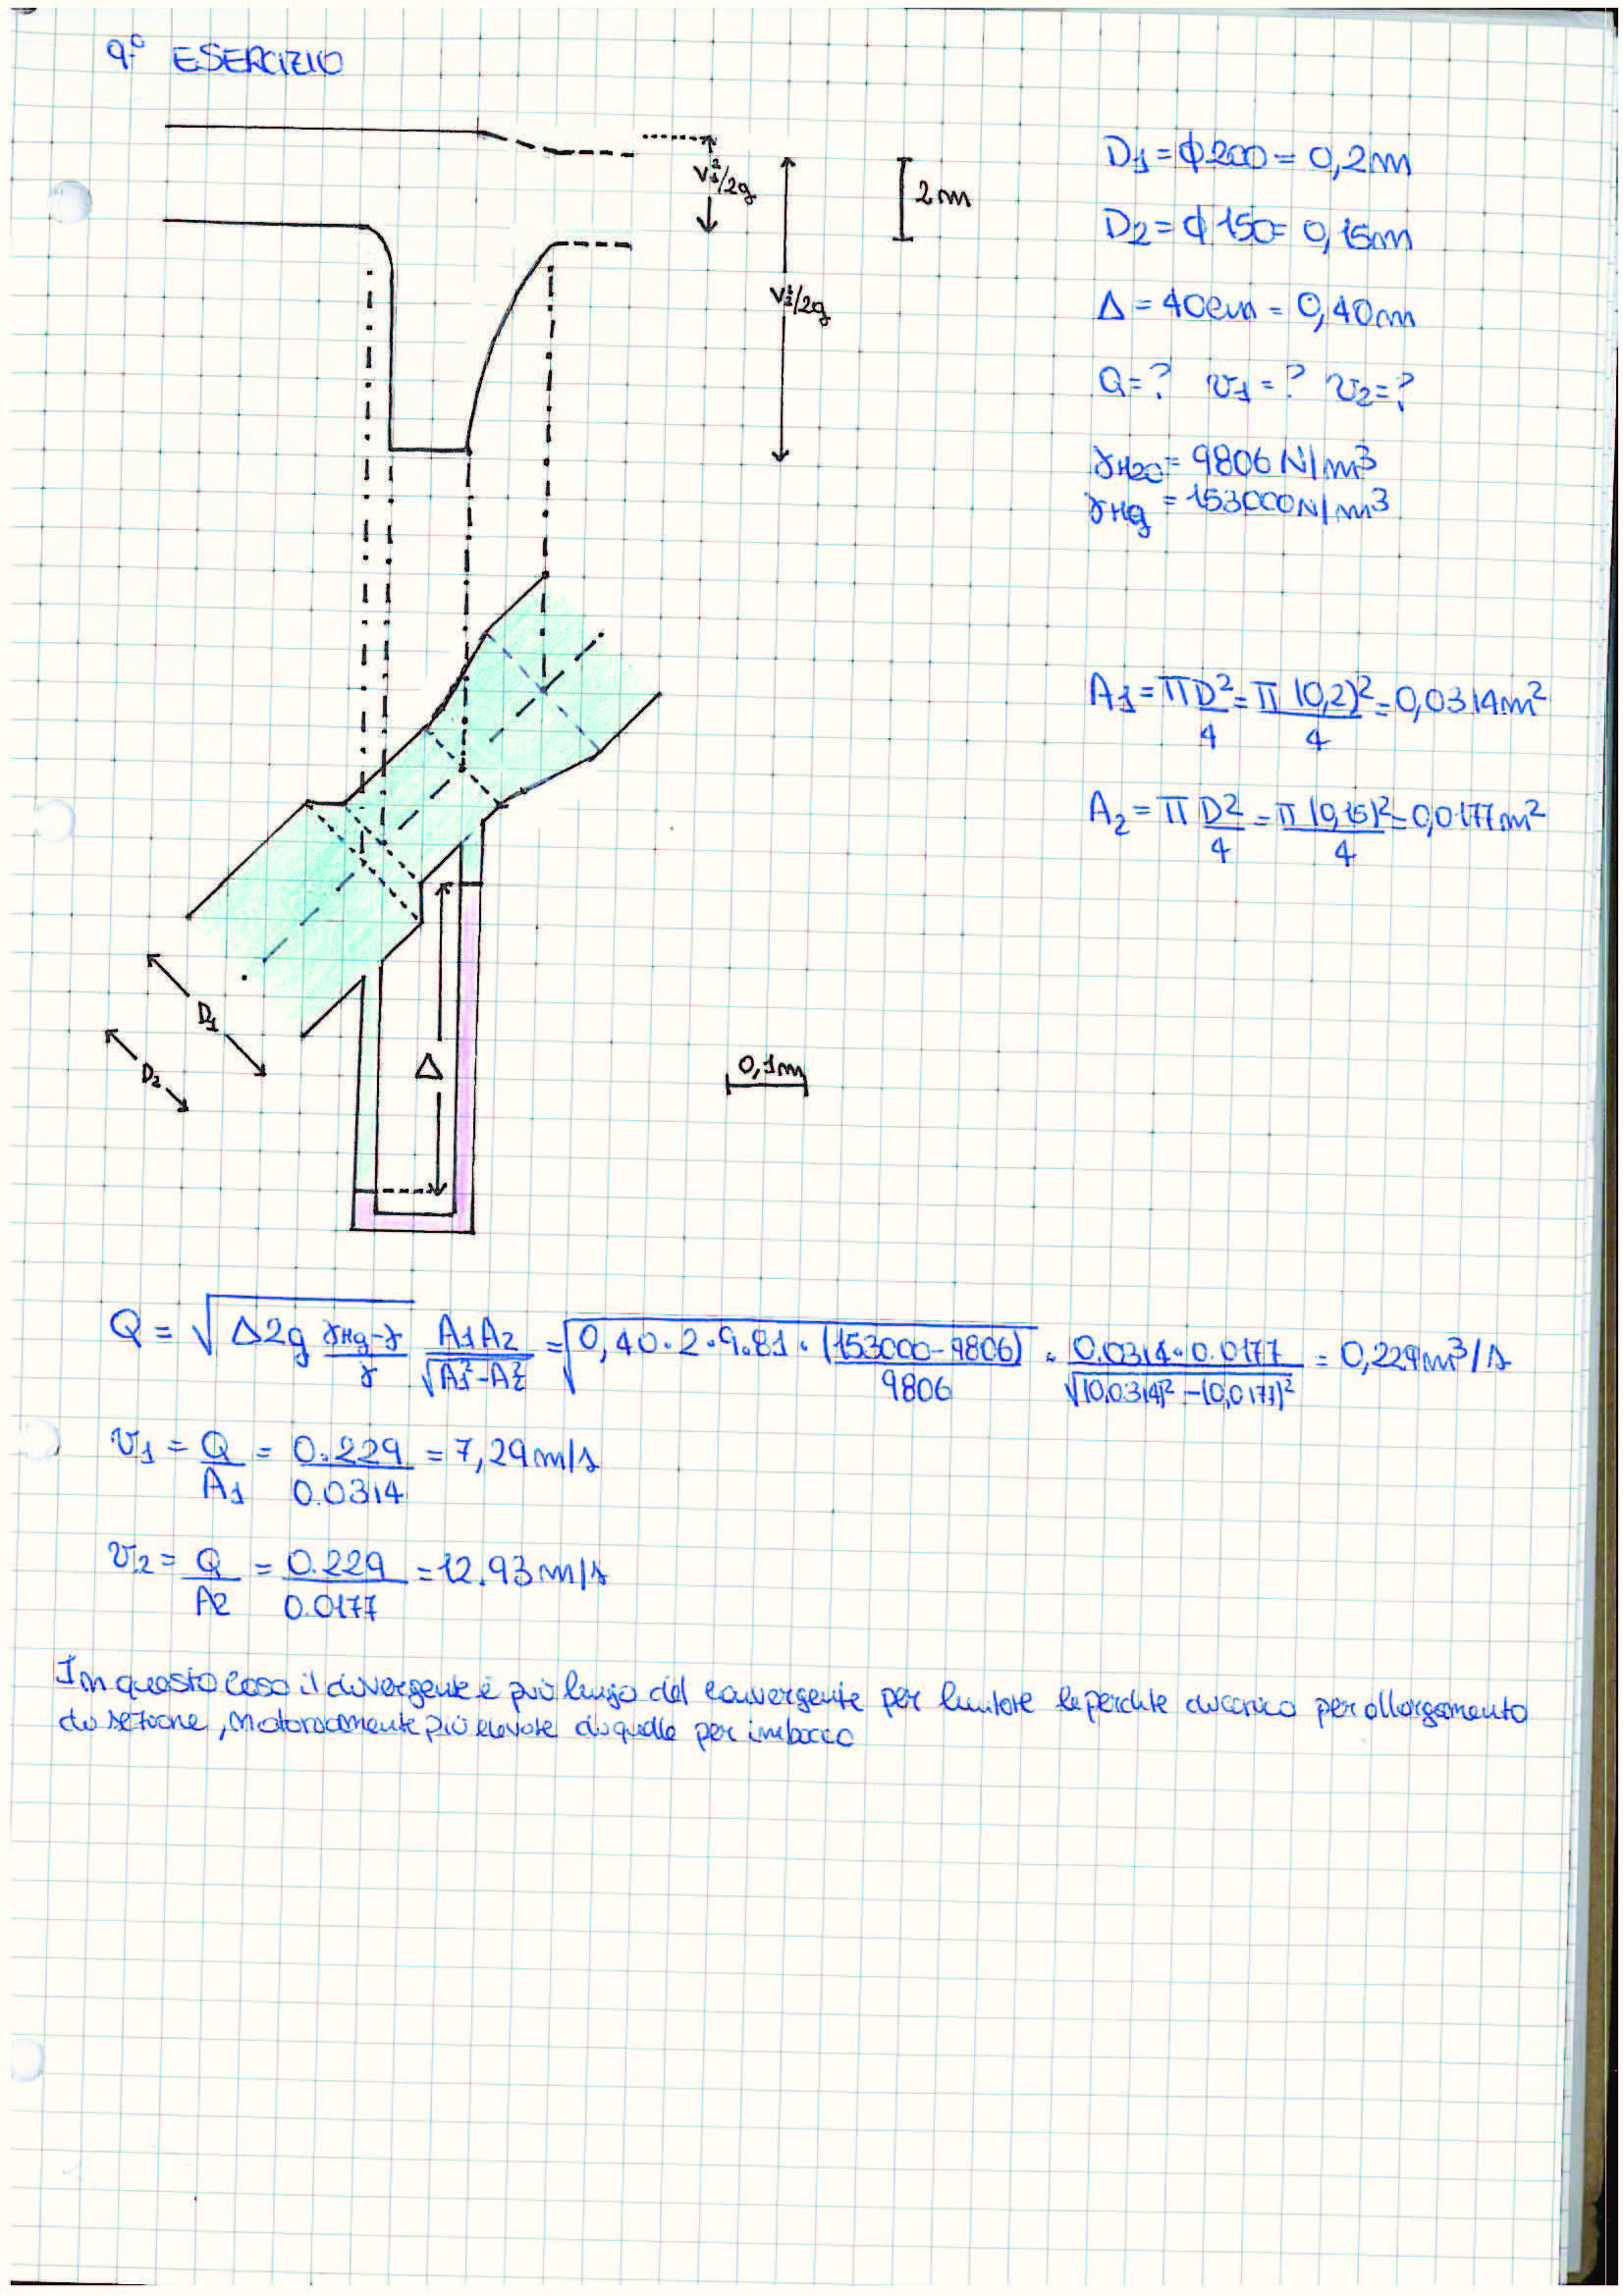 9° ESERCIZIO
D1 = ϕ200 = 0,2m
V1²/2g
2m
D2 = ϕ150 = 0,15m
V2²/2g
Δ = 40cm = 0,40m
Q=? v1=? v2=?
γH2O = 9806 N/m³
γHg = 153000 N/m³
A1 = πD²/4 = π(0,2)²/4 = 0,0314m²
A2 = πD²/4 = π(0,15)²/4 = 0,0177m²
D1
D2
Δ
0,1m
Q = √(Δ2g (γHg-γ)/γ) A1A2/√(A1²-A2²) = √(0,40·2·9.81·(153000-9806)/9806) · 0.0314·0.0177/√((0.0314)²-(0,0177)²) = 0,229m³/s
v1 = Q/A1 = 0.229/0.0314 = 7,29m/s
v2 = Q/A2 = 0.229/0.0177 = 12.93m/s
In questo caso il divergente è più lungo del convergente per limitare le perdite di carico per allargamento
di sezione, notoriamente più elevate di quelle per imbocco